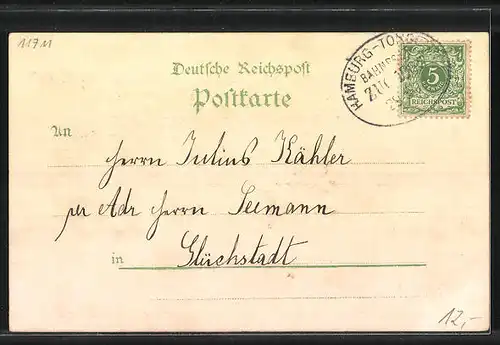 11711
Deutsche Reichspost
Postkarte
HAMBURG-
BAHNPOST
ZUG
5
REICHSPOST
An
Herrn Julius Kähler
per Adr Herrn Seemann
in Glückstadt
12,-